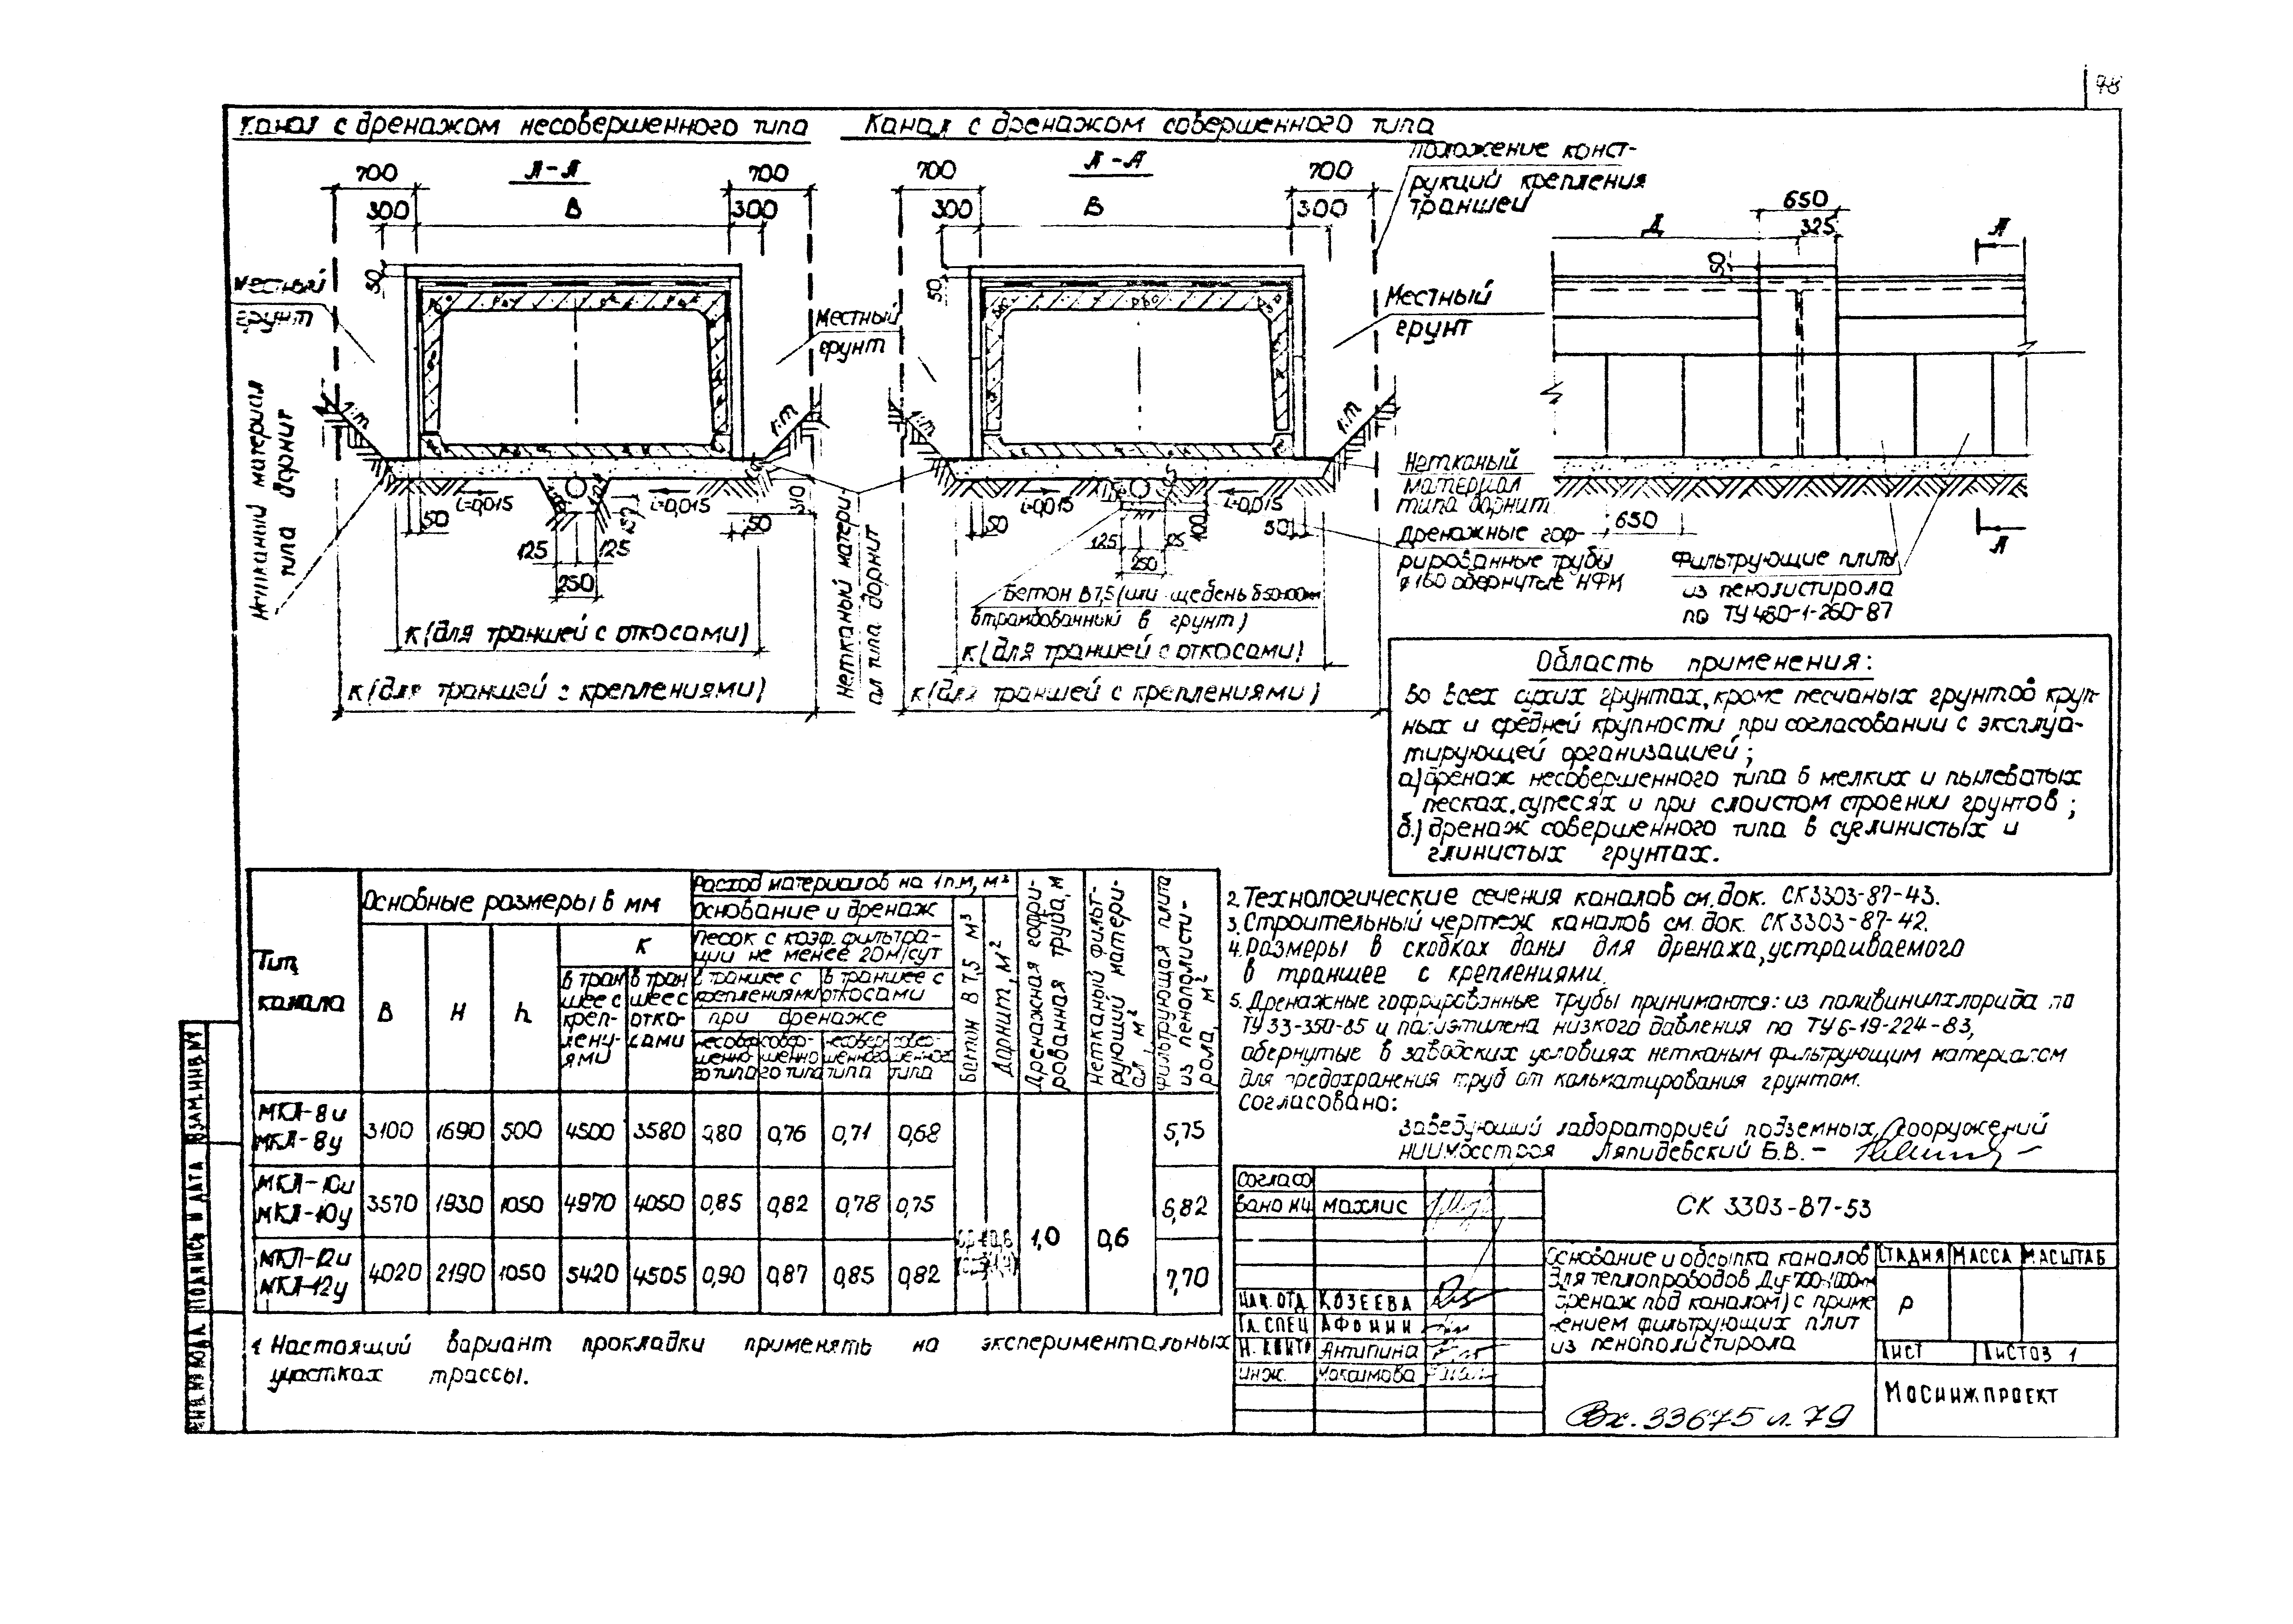 78
Канал с дренажом несовершенного типа
Канал с дренажом совершенного типа
А-А
700
700
300
В
300
50
Местный
грунт
Местный
грунт
Нетканый материал
типа дорнит
1:m
1:m
i=0,015
i=0,015
50
50
150
125
125
250
К (для траншей с откосами)
К (для траншей с креплениями)
Нетканый матери-
ал типа дорнит
А-А
700
700
300
В
300
50
Положение конст-
рукций крепления
траншей
Местный
грунт
1:m
1:m
i=0,015
i=0,015
50
50
100
125
125
250
Нетканый
материал
типа дорнит
Дренажные гоф-
рированные трубы
ø160 обернутые НФМ
Бетон В7,5 (или щебень δ50-100мм
втрамбованный в грунт)
К (для траншей с откосами)
К (для траншей с креплениями)
650
Д
325
50
А
650
А
Фильтрующие плиты
из пенолистирола
по ТУ 480-1-260-87
Область применения:
Во всех сухих грунтах, кроме песчаных грунтов круп-
ных и средней крупности при согласовании с эксплуа-
тирующей организацией;
а) дренаж несовершенного типа в мелких и пылеватых
песках, супесях и при слоистом строении грунтов;
б.) дренаж совершенного типа в суглинистых и
глинистых грунтах.
Тип
канала
Основные размеры в мм
В
Н
h
К
в тран
шее с
креп-
лени-
ями
в тран
шее с
отко-
сами
Расход материалов на 1 п.м, м³
Основание и дренаж
Песок с коэф. фильтра-
ции не менее 20м/сут
в траншее с
креплениями
в траншее с
откосами
при дренаже
несовер
шенно
го типа
совер-
шенно
го типа
несовер
шенного
типа
совер-
шенного
типа
Бетон В 7,5 м³
Дорнит, м²
Дренажная гофри-
рованная труба, м
Нетканый фильт-
рующий матери-
ал м²
Фильтрующая плита
из пенополисти-
рола, м²
МКЛ-8и
МКЛ-8у
3100 1690 500 4500 3580 0,80 0,76 0,71 0,68 5,75
МКЛ-10и
МКЛ-10у
3570 1930 1050 4970 4050 0,85 0,82 0,78 0,75 6,82
МКЛ-12и
МКЛ-12у
4020 2190 1050 5420 4505 0,90 0,87 0,85 0,82 1,0 0,6 7,70
1. Настоящий вариант прокладки применять на экспериментальных
участках трассы.
2. Технологические сечения каналов см. док. СК3303-87-43.
3. Строительный чертеж каналов см. док. СК3303-87-42.
4. Размеры в скобках даны для дренажа, устраиваемого
в траншее с креплениями.
5. Дренажные гофрированные трубы принимаются: из поливинилхлорида по
ТУ 33-350-85 и полиэтилена низкого давления по ТУ6-19-224-83,
обернутые в заводских условиях нетканым фильтрующим материалом
для предохранения труб от кольматирования грунтом.
Согласовано:
Заведующий лабораторией подземных сооружений
НИИМосстроя Ляпидевский Б.В. -
Согласо
вано НЦ Махлис
Нач. отд. Козеева
Гл. спец Афонин
Н. контр Антипина
Инж. Максимова
СК 3303-87-53
Основание и обсыпка каналов
для теплопроводов Ду=700-1000мм
дренаж под каналом) с приме
нением фильтрующих плит
из пенополистирола
Стадия Масса Масштаб
Р
Лист
Листов 1
Мосинжпроект
Вх. 33675 л. 79
Взам. инв №
Подпись и дата
Инв. № подл.